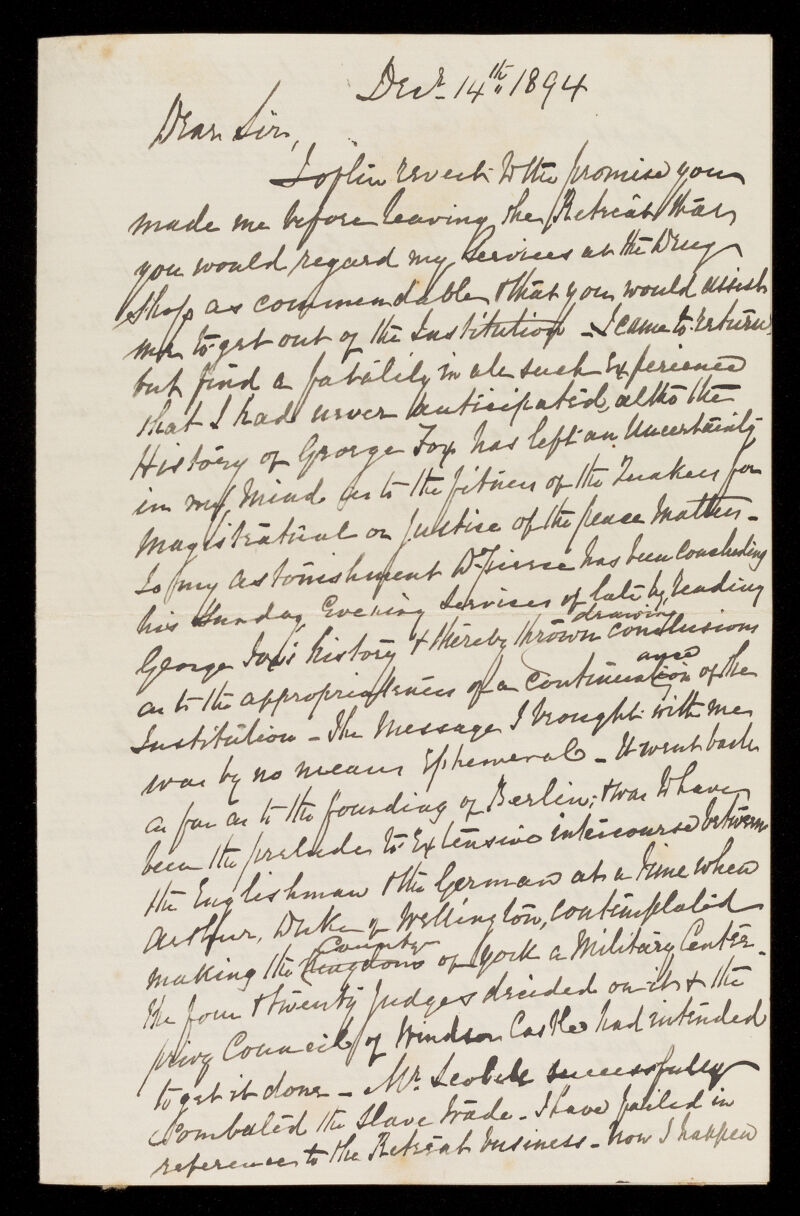 Decr. 14th 1894
Dear Sir,
I often revert to the promise you
made me before leaving the Retreat that
you would regard my services at the Drug
Shop as commendable & that you would assist
me to get out of the Institution - I came to return
but find a fatality in all such experience
that I had never anticipated, altho the
History of George Fox has left an uncertainty
in my mind as to the fitness of the Quakers for
magistratical or justice of the peace matters -
To my astonishment Dr Pierce has been concluding
his Sunday Evening Services of late by reading
George Fox's history & thereby thrown drawing conclusions
as to the appropriateness of a continuation ance of the
Institution - The Message I brought with me
was by no means Ephemeral - It went back
as far as to the founding of Berlin; & was to have
been the prelude to Extensive intercourse between
the Englishman & the German at a time when
Arthur, Duke of Wellington, contemplated
making the Kingdom County of York a Military Center -
the four & twenty Judges decided on it & the
privy Council of Windsor Castle had intended
to get it done - Mr. successfully
Combated the Slave trade - I have failed in
reference to the Retreat business - now I happen